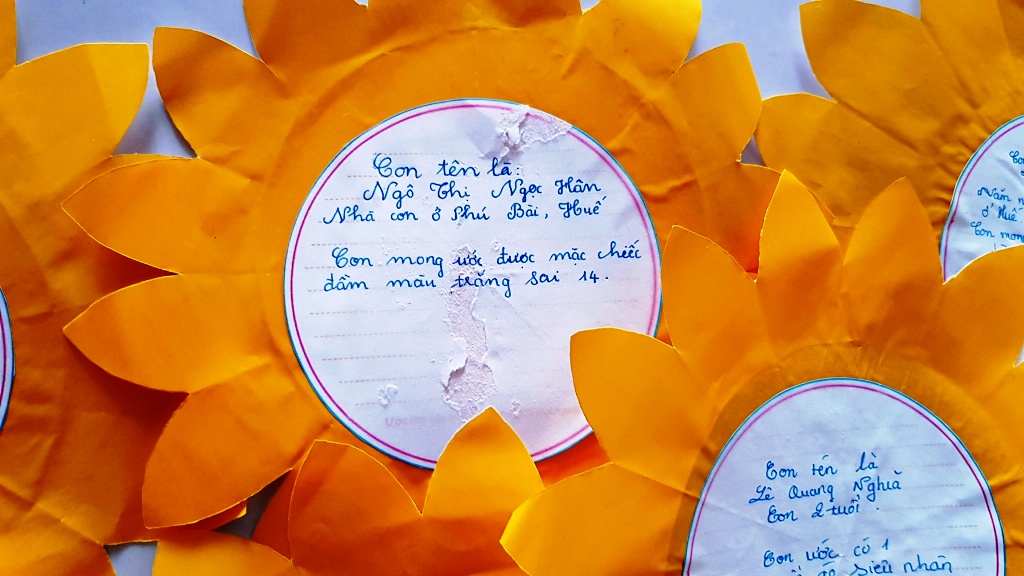 Con tên là:
Ngô Thị Ngọc Hân
Nhà con ở Phú Bài, Huế
Con mong ước được mặc chiếc
đầm màu trắng sai 14.
Con tên là
Lê Quang Nghĩa
Con 2 tuổi.
Con ước có 1
siêu nhân
ở Huế
Con mon